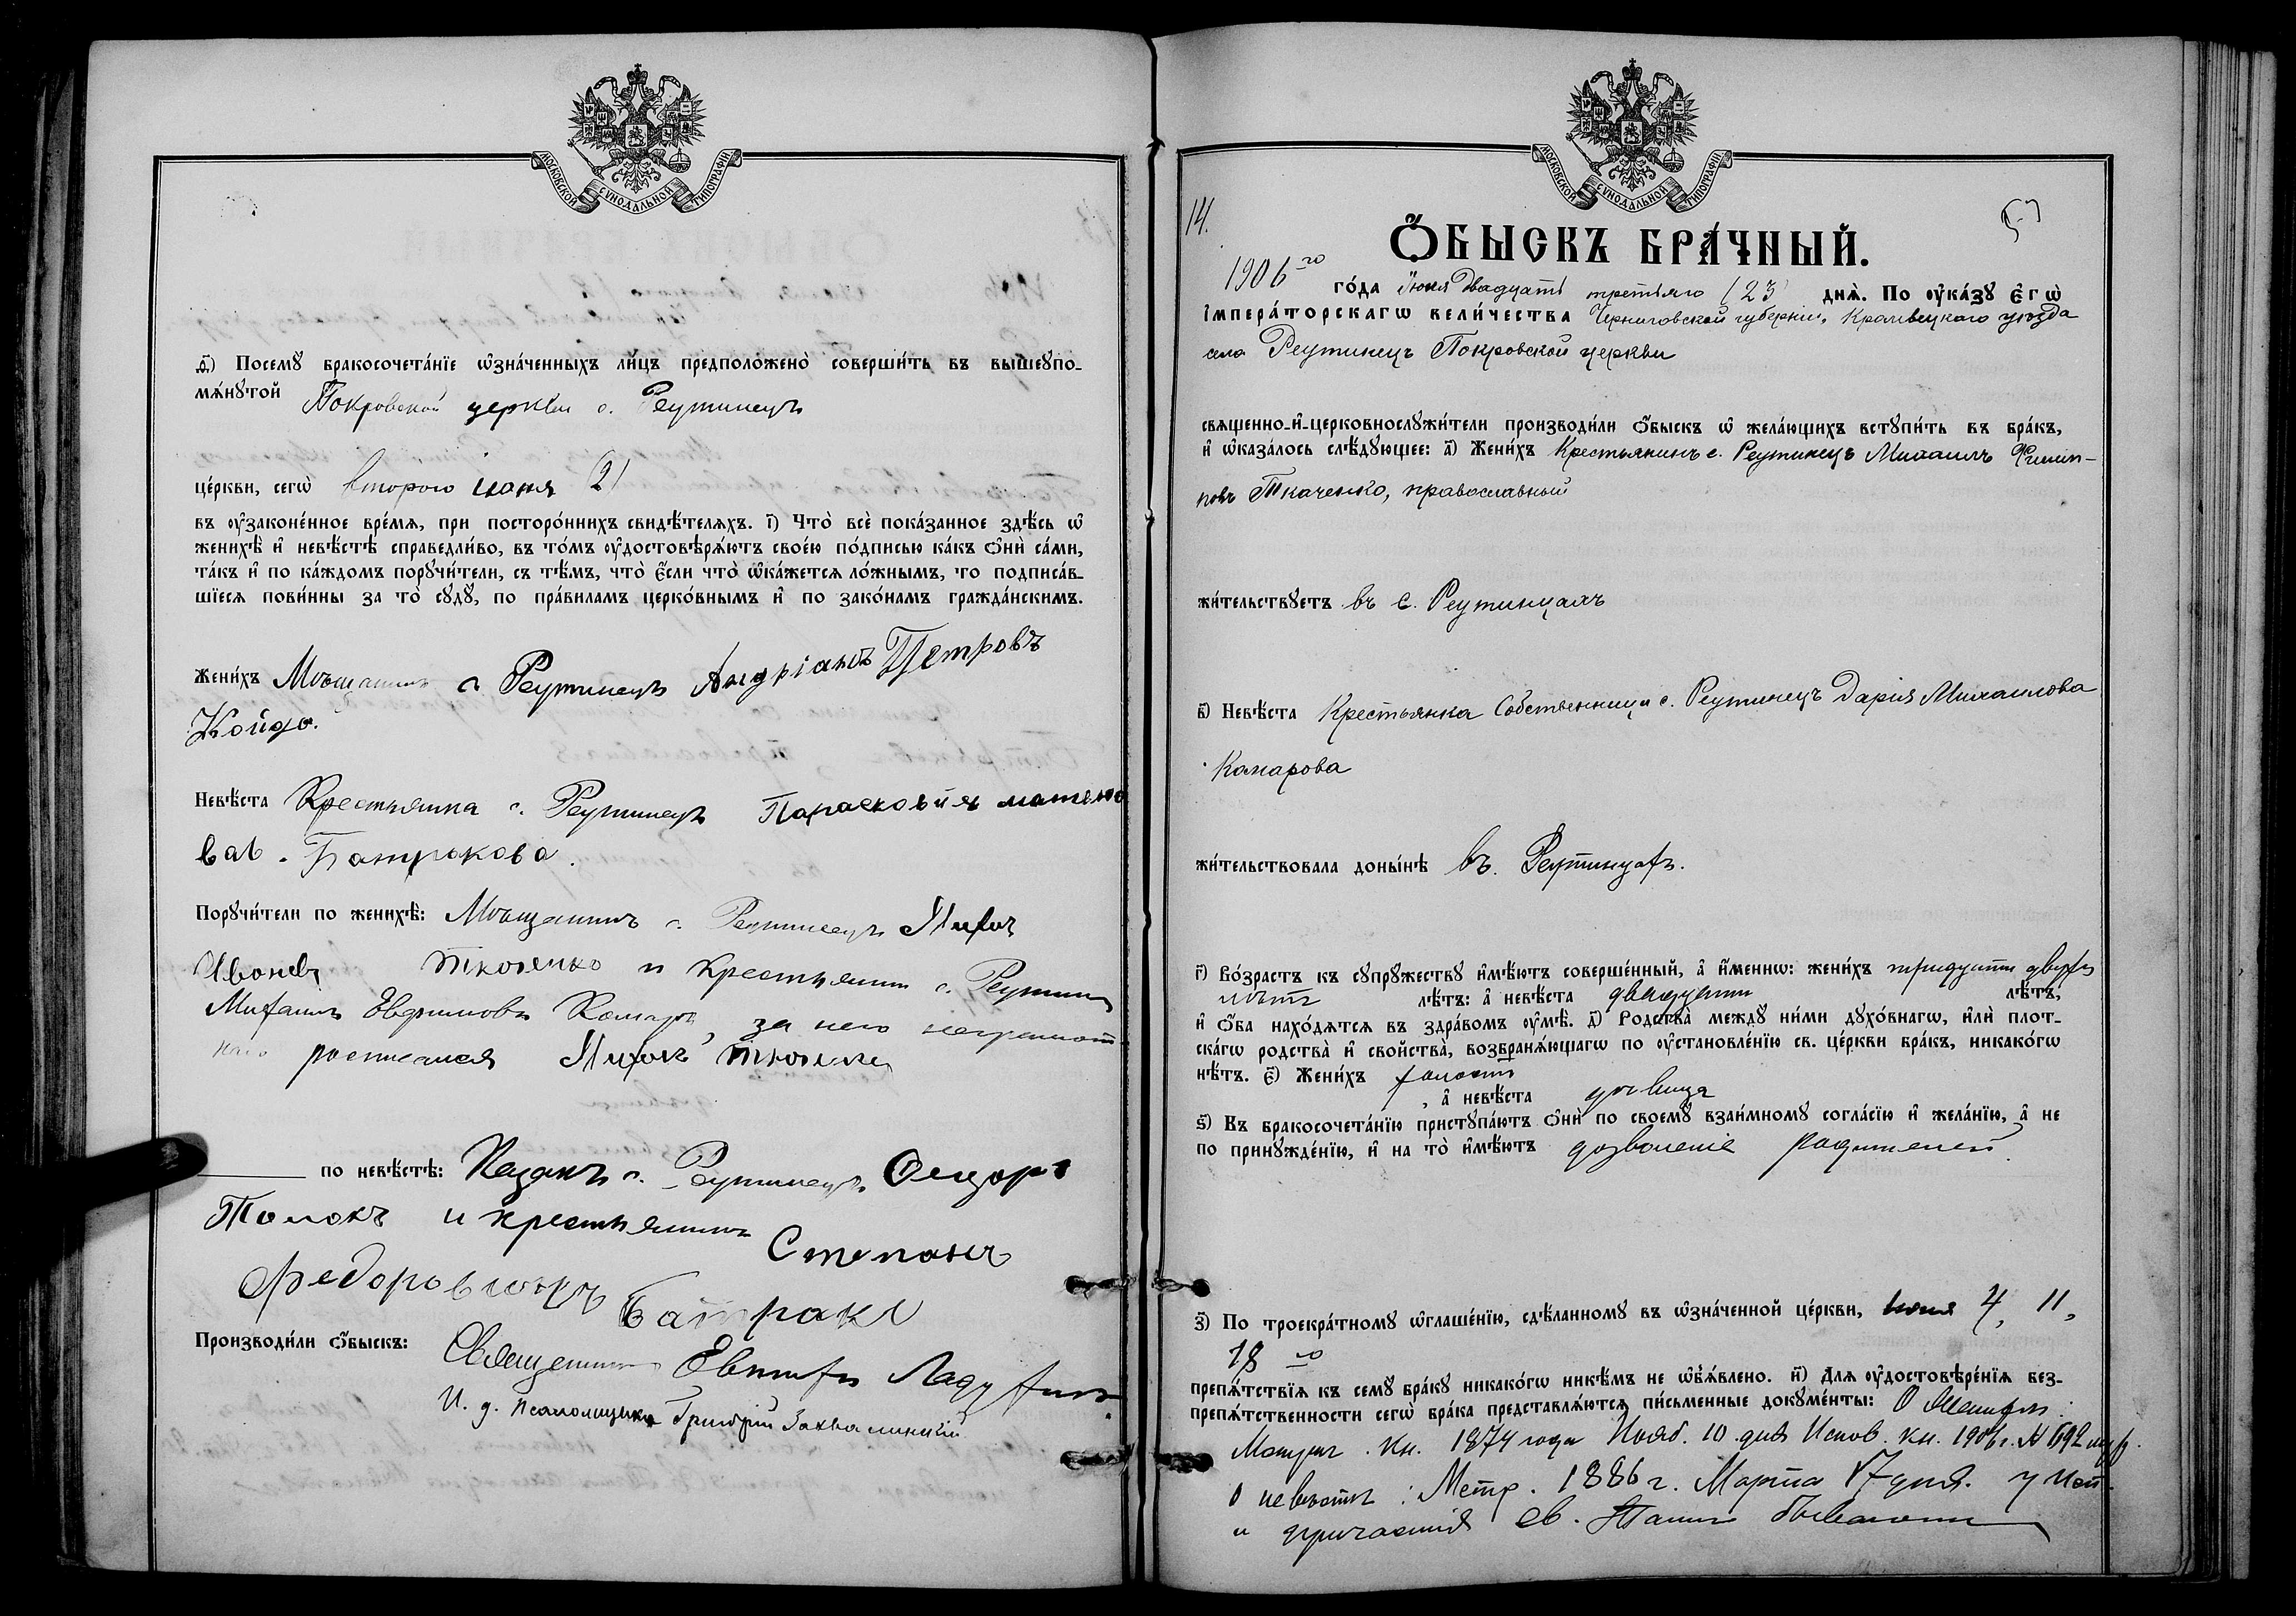 МОСКОВСКОЙ СѴНОДАЛЬНОЙ ТИПОГРАФІИ
д҃і) Посемꙋ̀ бракосочета́нїе ѡ҆зна́ченныхъ ли́цъ предполо́жено̀ соверши́ть въ вышеꙋпо-
мѧ́нꙋтой Покровской церкви с. Реутинецъ
це́ркви, сегѡ̀ второго іюня (2)
въ ᲂу҆законе́нное вре́мѧ, при посторо́ннихъ свидѣ́телѧхъ. і҃) Что̀ всѐ пока́занное здѣ́сь ѡ҆
женихѣ̀ и҆ невѣ́стѣ справедли́во, въ то́мъ ᲂу҆достовѣрѧ́ютъ свое́ю по́дписью ка́къ ѻ҆нѝ са́ми,
та́къ и҆ по ка́ждомъ порꙋчи́тели, съ тѣ́мъ, что̀ є҆́сли что̀ ѡ҆ка́жетсѧ ло́жнымъ, то подписа́в-
шїесѧ пови́нны за то̀ сꙋдꙋ̀, по пра́виламъ церко́внымъ и҆ по зако́намъ гражда́нскимъ.
Жени́хъ Мѣщанинъ с. Реутинецъ Андріанъ Петровъ
Койда.
Невѣ́ста Крестьянка с. Реутинецъ Парасковия матвѣе
ва . Батракова.
Порꙋчи́тели по женихѣ̀: Мѣщанинъ с. Реутинецъ
Ивановъ Ткаченко и Крестьянин с. Реутин
Михаилъ Евфимовъ Комаръ, за него неграмот-
наго росписался Ткаченко
по невѣ́стѣ: Казакъ с. Реутинецъ Федоръ
Толокъ и крестьянинъ Степанъ
Федоровичъ Батракъ
Производи́ли ѻ҆́быскъ: Священникъ Евтихій
И. д. псаломщика Григорій
МОСКОВСКОЙ СѴНОДАЛЬНОЙ ТИПОГРАФІИ
14.
Ѻ҆́БЫСКЪ БРА́ЧНЫЙ.
1906го го́да Іюня двадцать третьяго (23) днѧ̀. По ᲂу҆ка́зꙋ Є҆гѡ̀
І҆мпера́торскагѡ вели́чества Черниговской губерніи, Кролевецкаго уѣзда
села Реутинецъ Покровской церкви
свѧщенно-и҆-церковнослꙋжи́тели производи́ли ѻ҆́быскъ ѡ҆ жела́ющихъ встꙋпи́ть въ бра́къ,
и҆ ѡ҆каза́лось слѣ́дꙋющее: а҃) Жени́хъ Крестьянинъ с. Реутинецъ Михаилъ Филип-
повъ Ткаченко, православный
жи́тельствꙋетъ въ с. Реутинцахъ
в҃) Невѣ́ста Крестьянка Собственница с. Реутинецъ Дарія Михаилова
Комарова
жи́тельствовала доны́нѣ въ Реутинцахъ.
г҃) Во́зрастъ къ сꙋпрꙋ́жествꙋ и҆мѣ́ютъ соверше́нный, а҆ и҆́меннѡ: жени́хъ тридцати двухъ
лѣтъ лѣ́тъ: а҆ невѣ́ста двадцати лѣ́тъ,
и҆ ѻ҆́ба нахо́дѧтсѧ въ здра́вомъ ᲂу҆мѣ̀. д҃) Родства̀ междꙋ̀ ни́ми дꙋхо́внагѡ, и҆лѝ плот-
ска́гѡ родства̀ и҆ свойства̀, возбранѧ́ющагѡ по ᲂу҆становле́нїю св. це́ркви бра́къ, никако́гѡ
нѣ́тъ. є҃) Жени́хъ холостъ
, а҆ невѣ́ста дѣвица
ѕ҃) Въ бракосочета́нїю пристꙋпа́ютъ ѻ҆нѝ по своемꙋ̀ взаи́мномꙋ согла́сїю и҆ жела́нїю, а҆ не
по принꙋжде́нїю, и҆ на то̀ и҆мѣ́ютъ дозволеніе родителей.
з҃) По троекра́тномꙋ ѡ҆глаше́нїю, сдѣ́ланномꙋ въ ѡ҆зна́ченной це́ркви, Іюня 4, 11,
18го
препѧ́тствїѧ къ семꙋ̀ бра́кꙋ никако́гѡ никѣ́мъ не ѡ҆б̾ѧ́влено. и҃) Длѧ ᲂу҆достовѣре́нїѧ без-
препѧ́тственности сегѡ̀ бра́ка представлѧ́ютсѧ пи́сьменные докꙋме́нты: О Женихѣ:
Метрич. кн. 1874 года Нояб. 10 дня Испов. кн. 1906 г. № 692 муж.
О невѣстѣ: Метр. 1886 г. Марта 17 дня. у Исп.
и причастія Св. Таинъ бываютъ